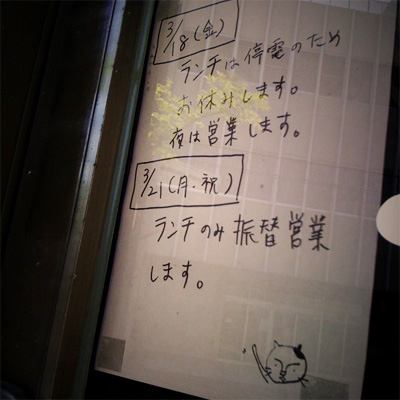 3/18(金)
ランチは停電のため
お休みします。
夜は営業します。
3/21(月・祝)
ランチのみ振替営業
します。